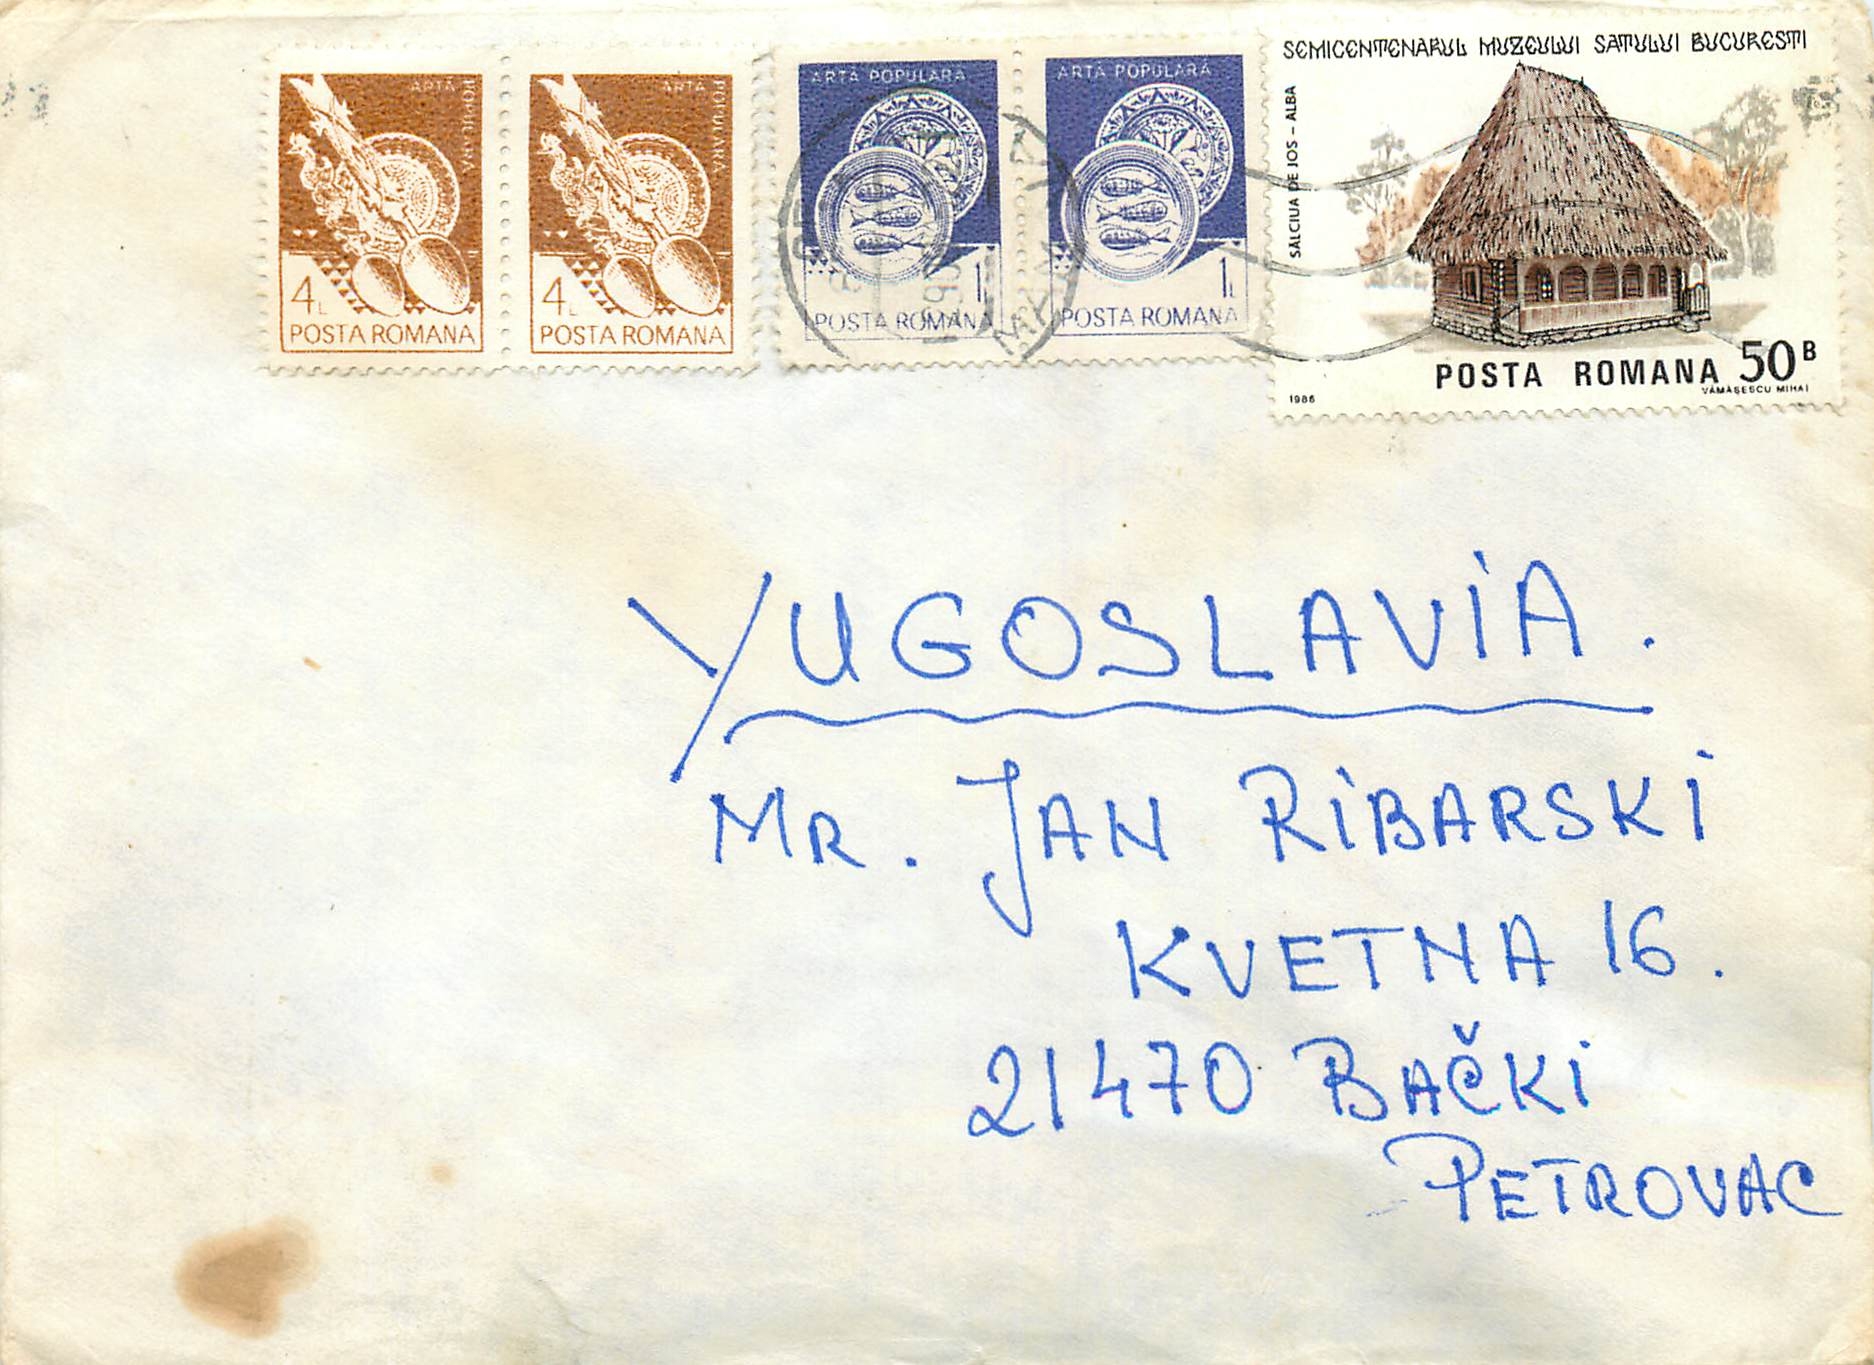 ARTA POPULARA
4L
POSTA ROMANA
ARTA POPULARA
4L
POSTA ROMANA
ARTA POPULARA
1L
POSTA ROMANA
ARTA POPULARA
1L
POSTA ROMANA
SEMICENTENARUL MUZEULUI SATULUI BUCURESTI
SALCIUA DE JOS - ALBA
POSTA ROMANA 50B
VĂMĂŞESCU MIHAI
1986
YUGOSLAVIA.
MR. JAN RIBARSKI
KVETNA 16.
21470 BAČKI
PETROVAC